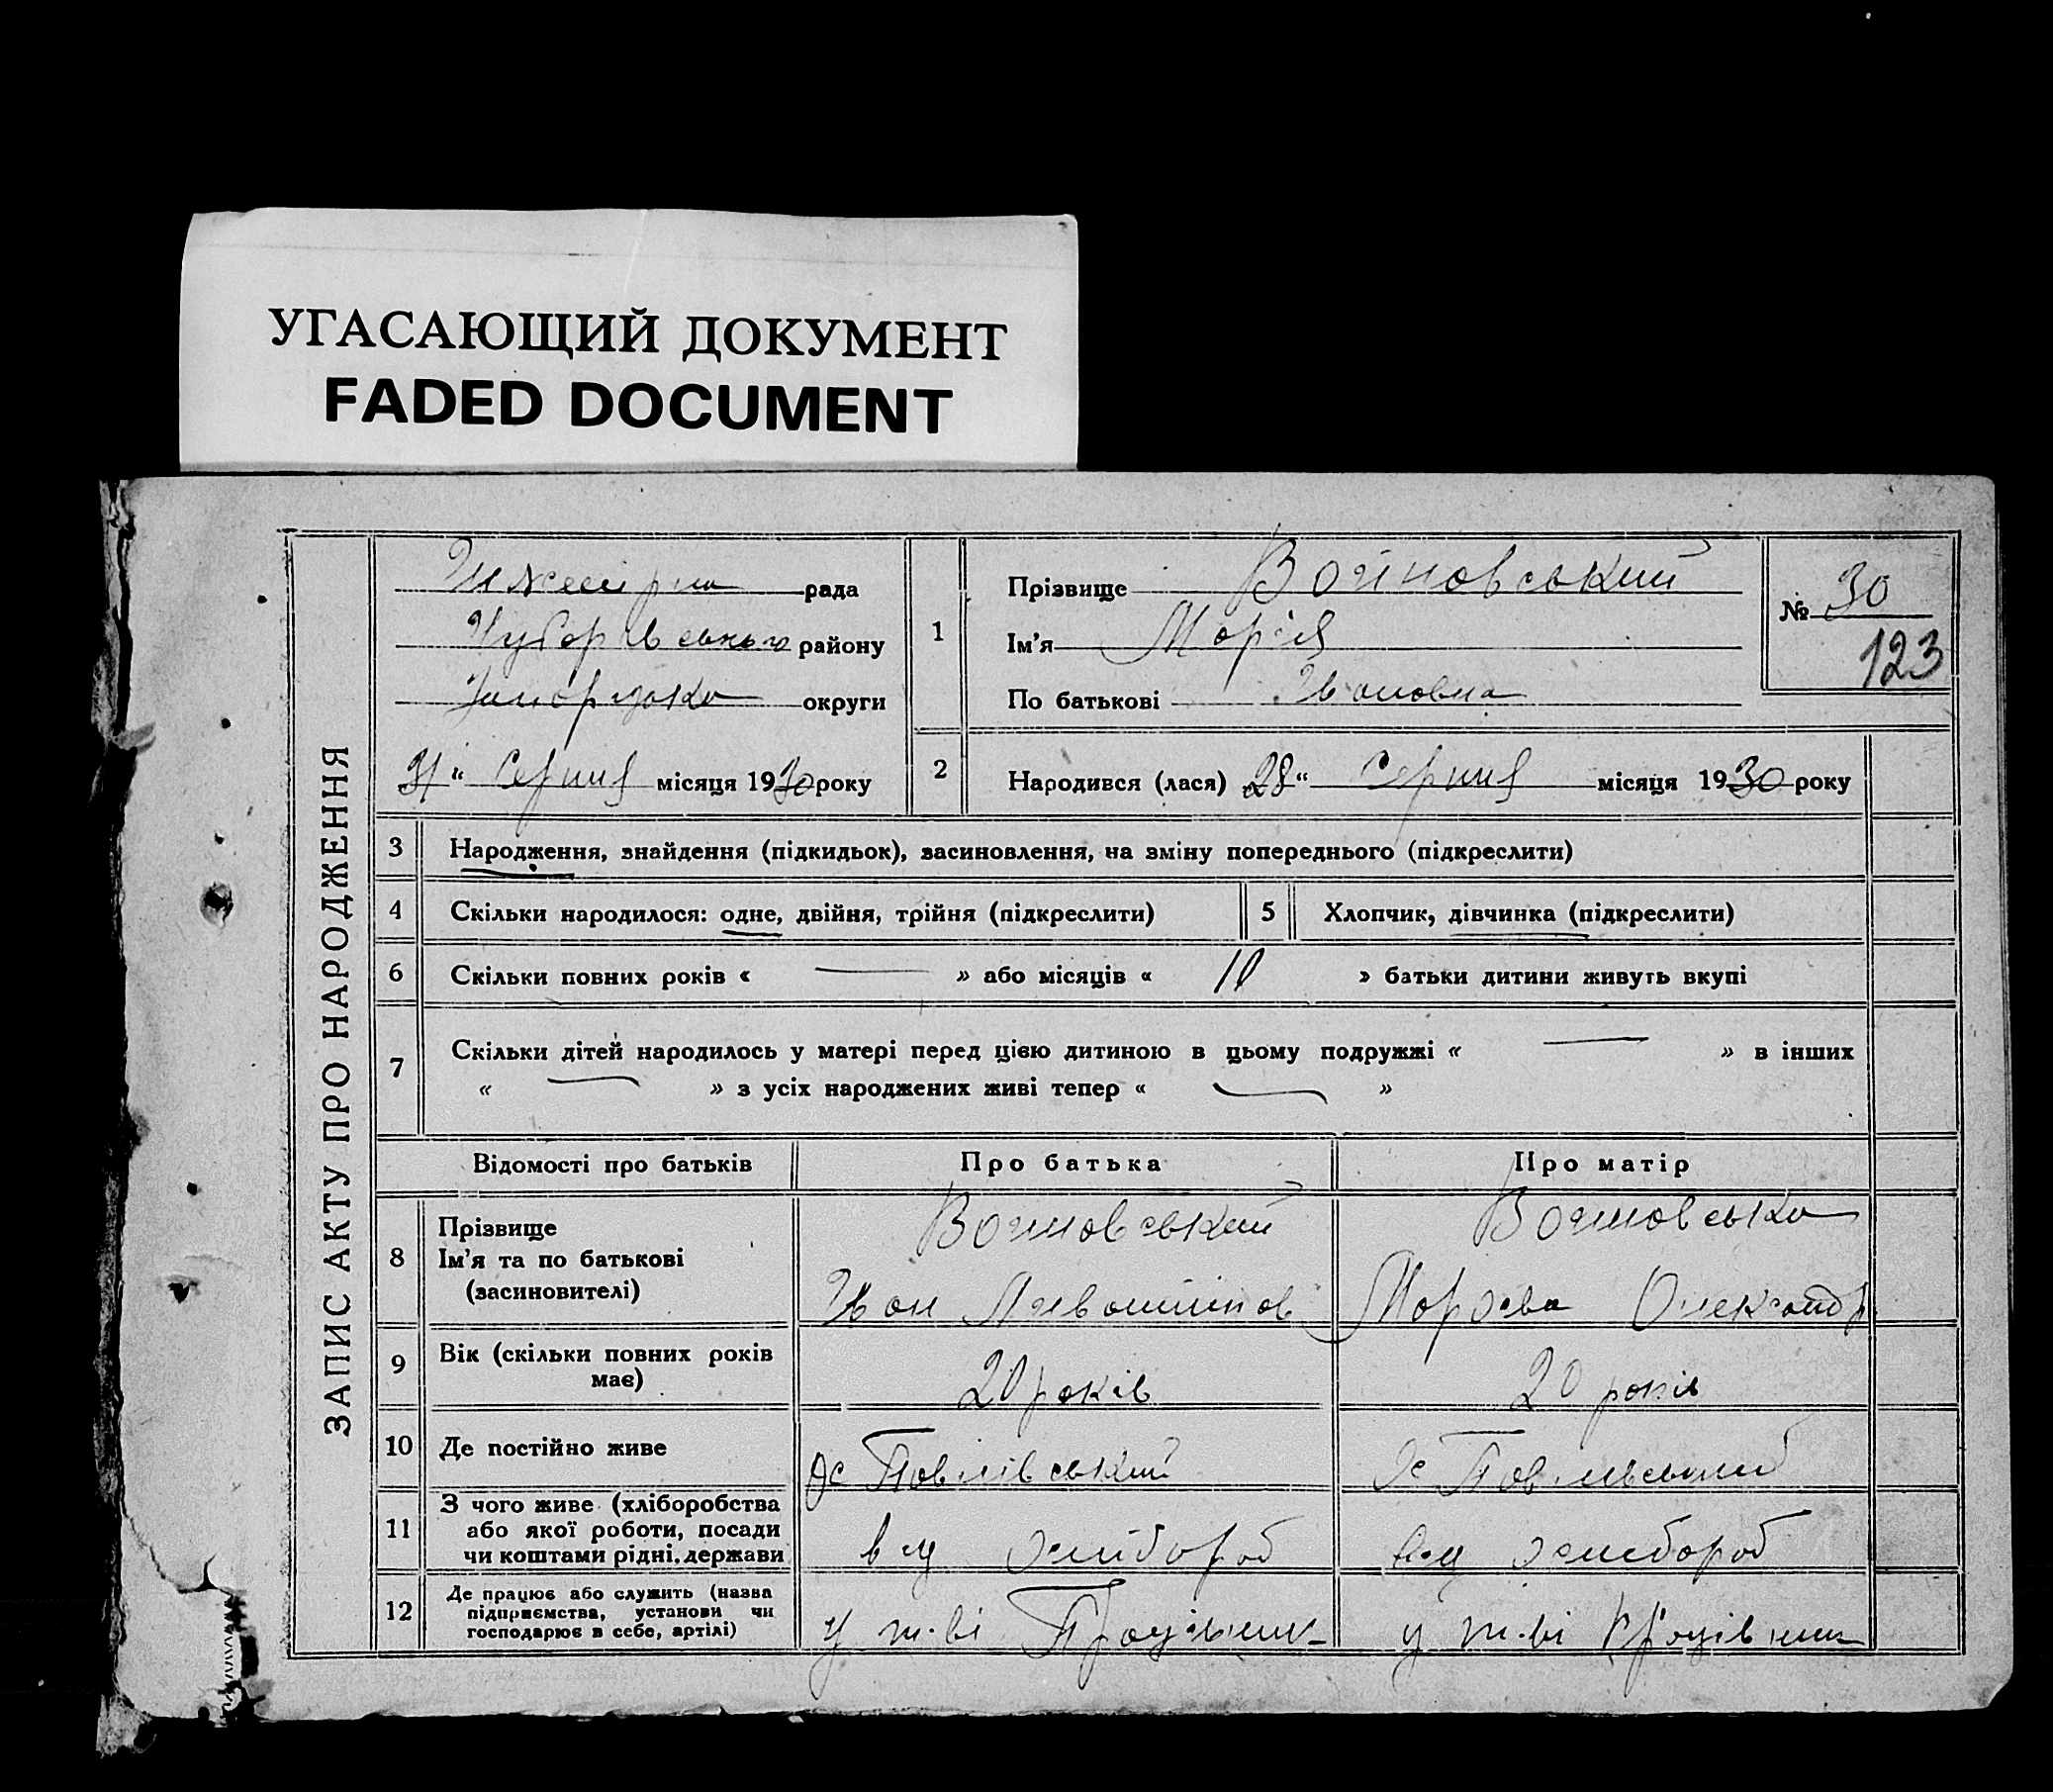 УГАСАЮЩИЙ ДОКУМЕНТ
FADED DOCUMENT
ЗАПИС АКТУ ПРО НАРОДЖЕННЯ
рада
району
округи
31 " Серпня місяця 1930 року
1
Прізвище Войновський
Ім'я Марія
По батькові Івановна
№ 30
123
2
Народився (лася) 28 " Серпня місяця 1930 року
3 Народження, знайдення (підкидьок), засиновлення, на зміну попереднього (підкреслити)
4 Скільки народилося: одне, двійня, трійня (підкреслити)
5 Хлопчик, дівчинка (підкреслити)
6 Скільки повних років « — » або місяців « 10 » батьки дитини живуть вкупі
7 Скільки дітей народилось у матері перед цією дитиною в цьому подружжі « — » в інших
« — » з усіх народжених живі тепер « — »
Відомості про батьків Про батька Про матір
8 Прізвище
Ім'я та по батькові
(засиновителі)
Войновський
Іван
Войновська
Олександр
9 Вік (скільки повних років
має)
20 років
20 років
10 Де постійно живе
Павлівський
Павлівський
11 З чого живе (хліборобства
або якої роботи, посади
чи коштами рідні, держави
хлібороб
хлібороб
12 Де працює або служить (назва
підприємства, установи чи
господарює в себе, артілі)
у т-ві Працівник
у т-ві Працівник